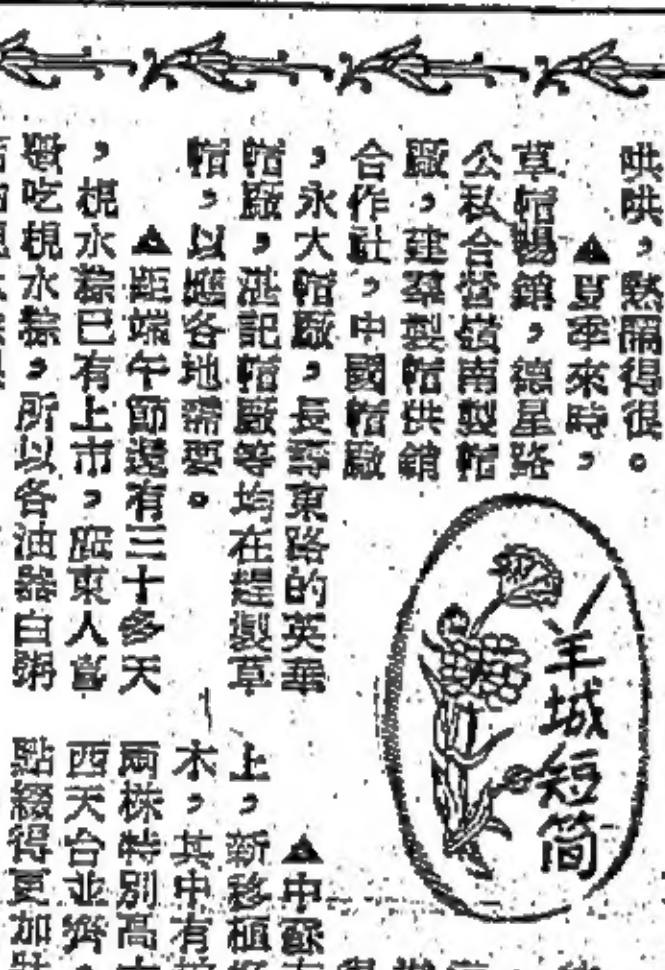 哄哄，熱鬧得很。
▲夏季來時，
草帽暢銷，德星路
公私合營嶺南製帽
廠，建羣製帽供銷
合作社，中國帽廠
，永大帽廠，長壽東路的英華
帽廠，洪記帽廠等均在趕製草
帽，以應各地需要。
▲距端午節還有三十多天
，梘水粽已有上市，廣東人喜
吃梘水粽，所以各油器白粥
羊城短简
▲中蘇
上，新移植
木，其中有
兩株特別高
西天台並
點綴得更加